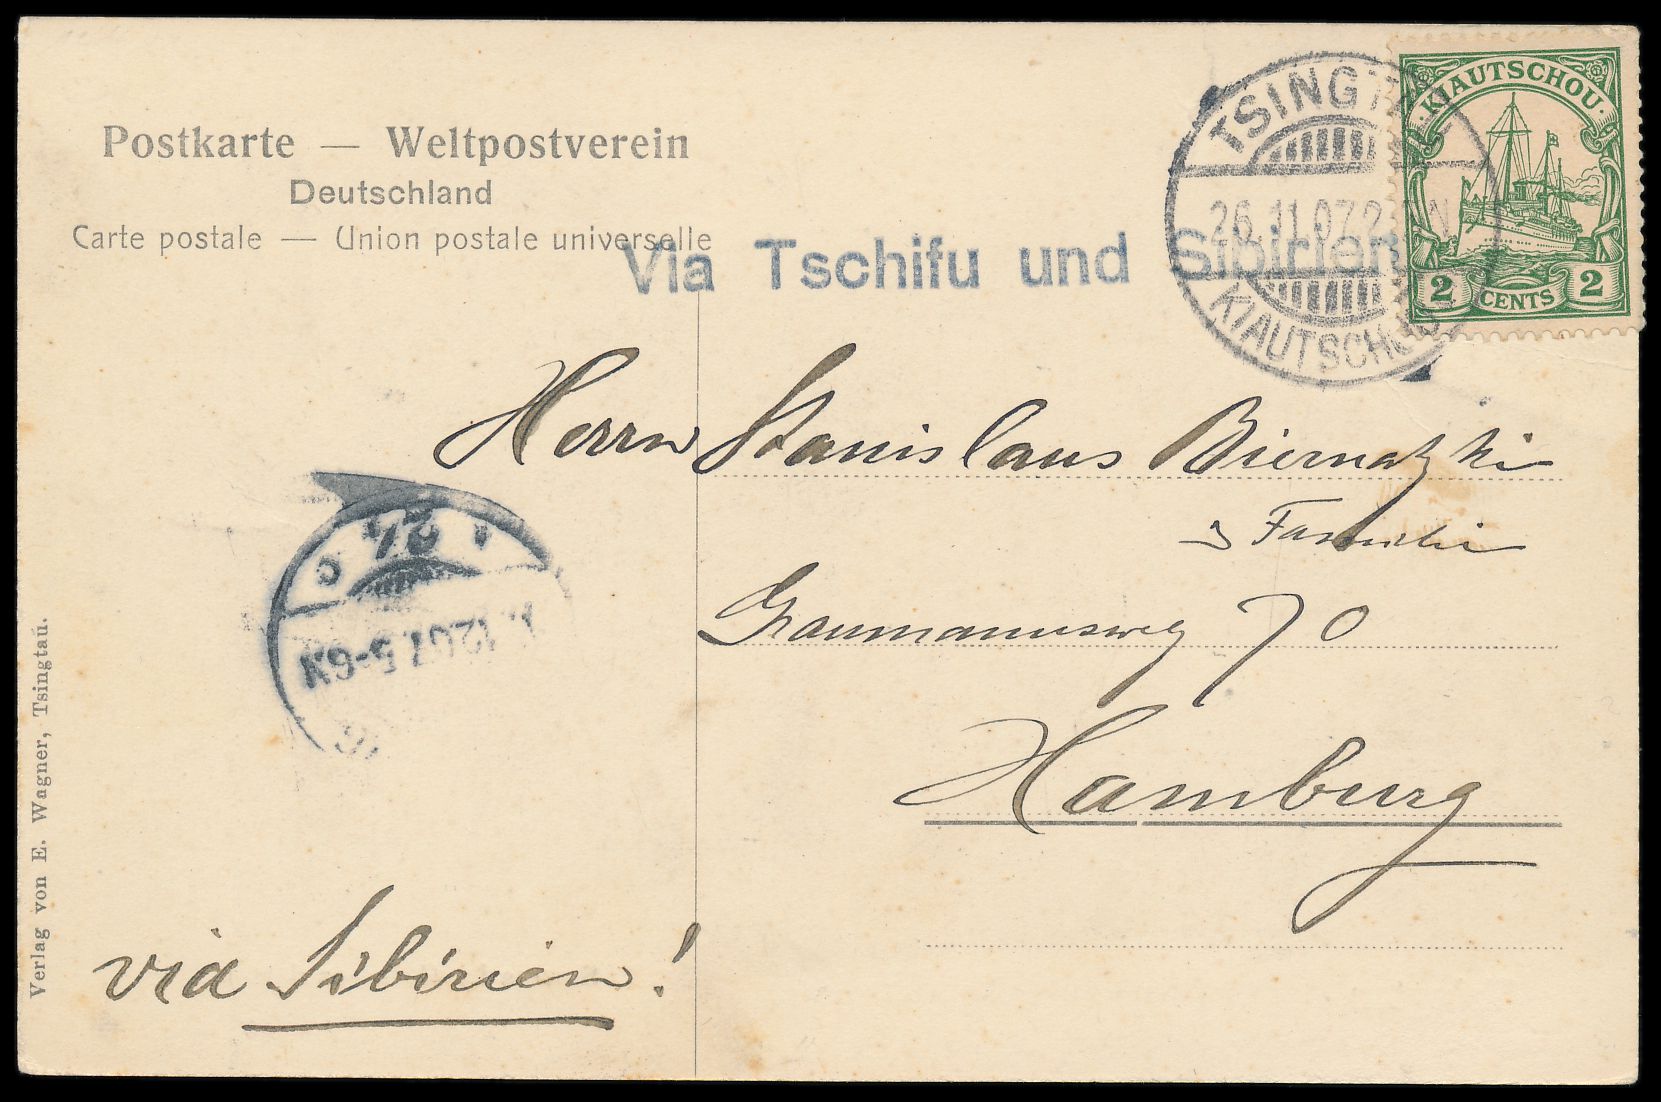 Postkarte — Weltpostverein
Deutschland
Carte postale — Union postale universelle
TSINGTAU
26.11.07.
KIAUTSCHOU
KIAUTSCHOU
2 CENTS 2
Via Tschifu und Sibirien
Herrn Stanislaus Biernatzki
Familie
Graumannsweg 70
Hamburg
24
12.07.5-6N
via Sibirien!
Verlag von E. Wagner, Tsingtau.